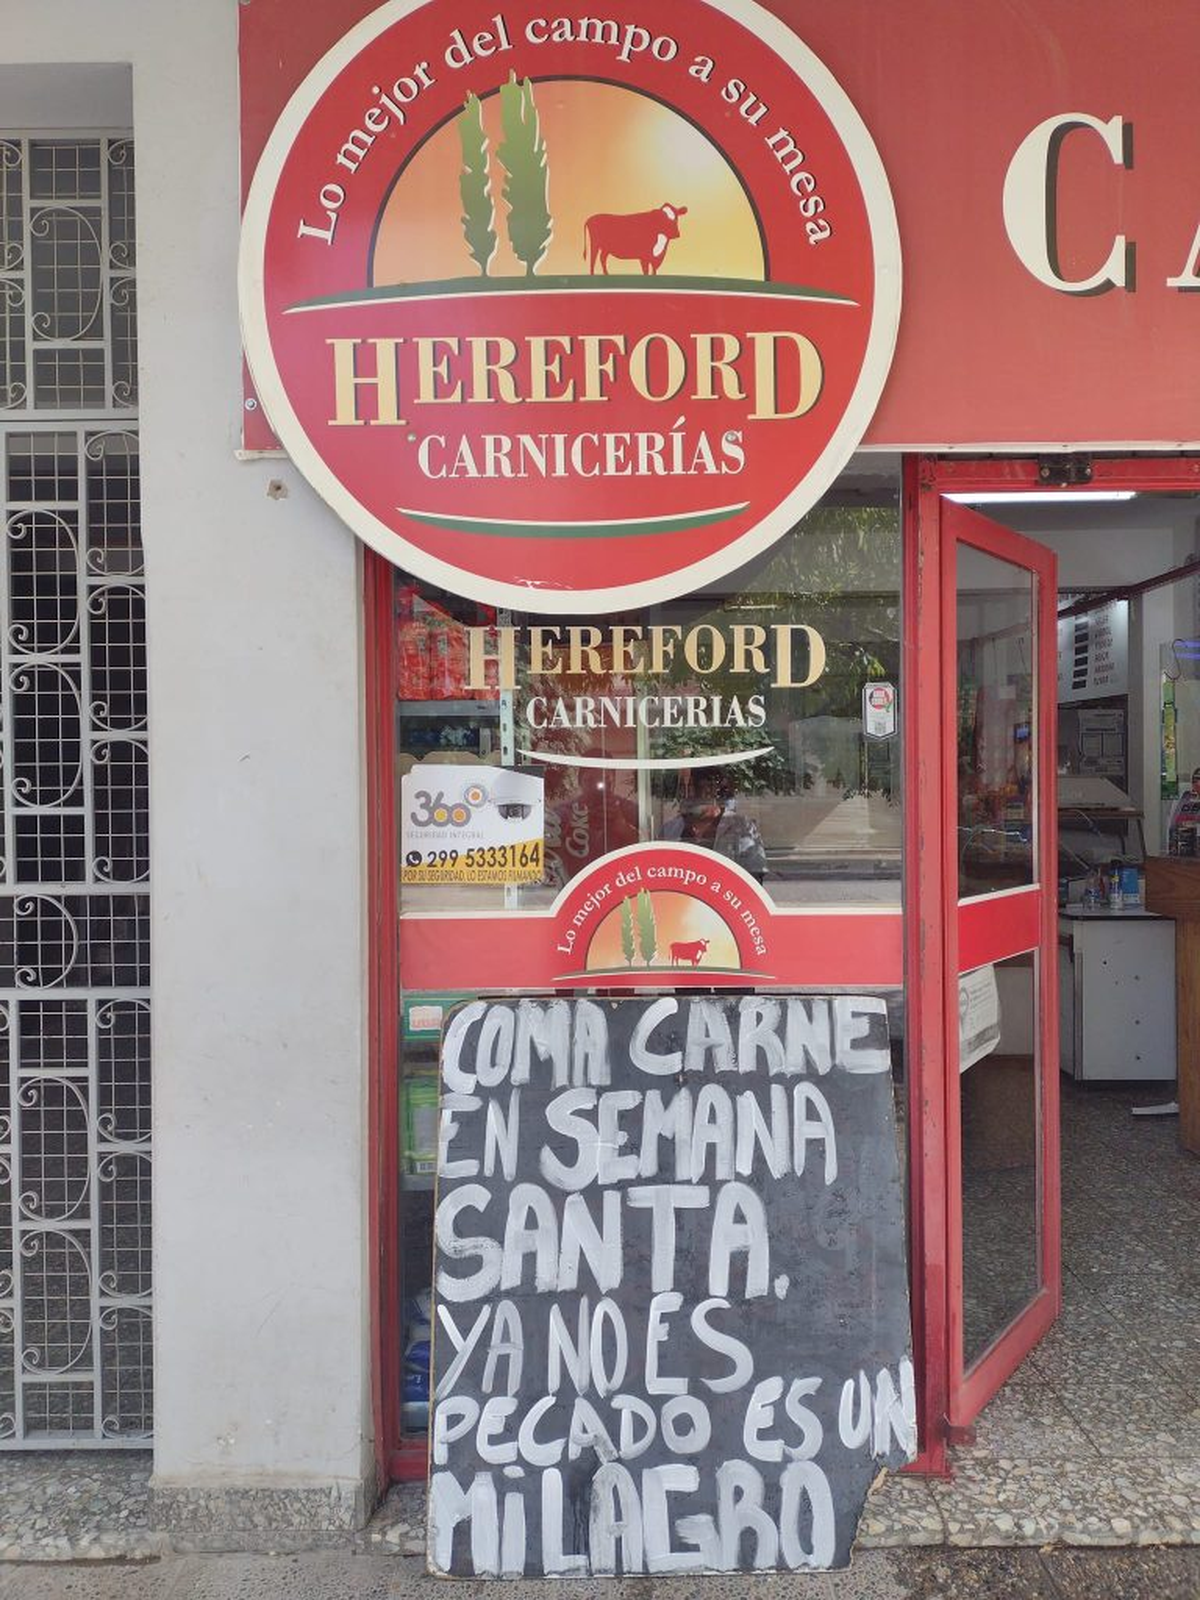 Lo mejor del campo a su mesa
HEREFORD
CARNICERÍAS
CA
HEREFORD
CARNICERIAS
360°
SEGURIDAD INTEGRAL
299 5333164
POR SU SEGURIDAD, LO ESTAMOS FILMANDO
Coke
Lo mejor del campo a su mesa
COMA CARNE
EN SEMANA
SANTA.
YA NO ES
PECADO ES UN
MiLAGRO